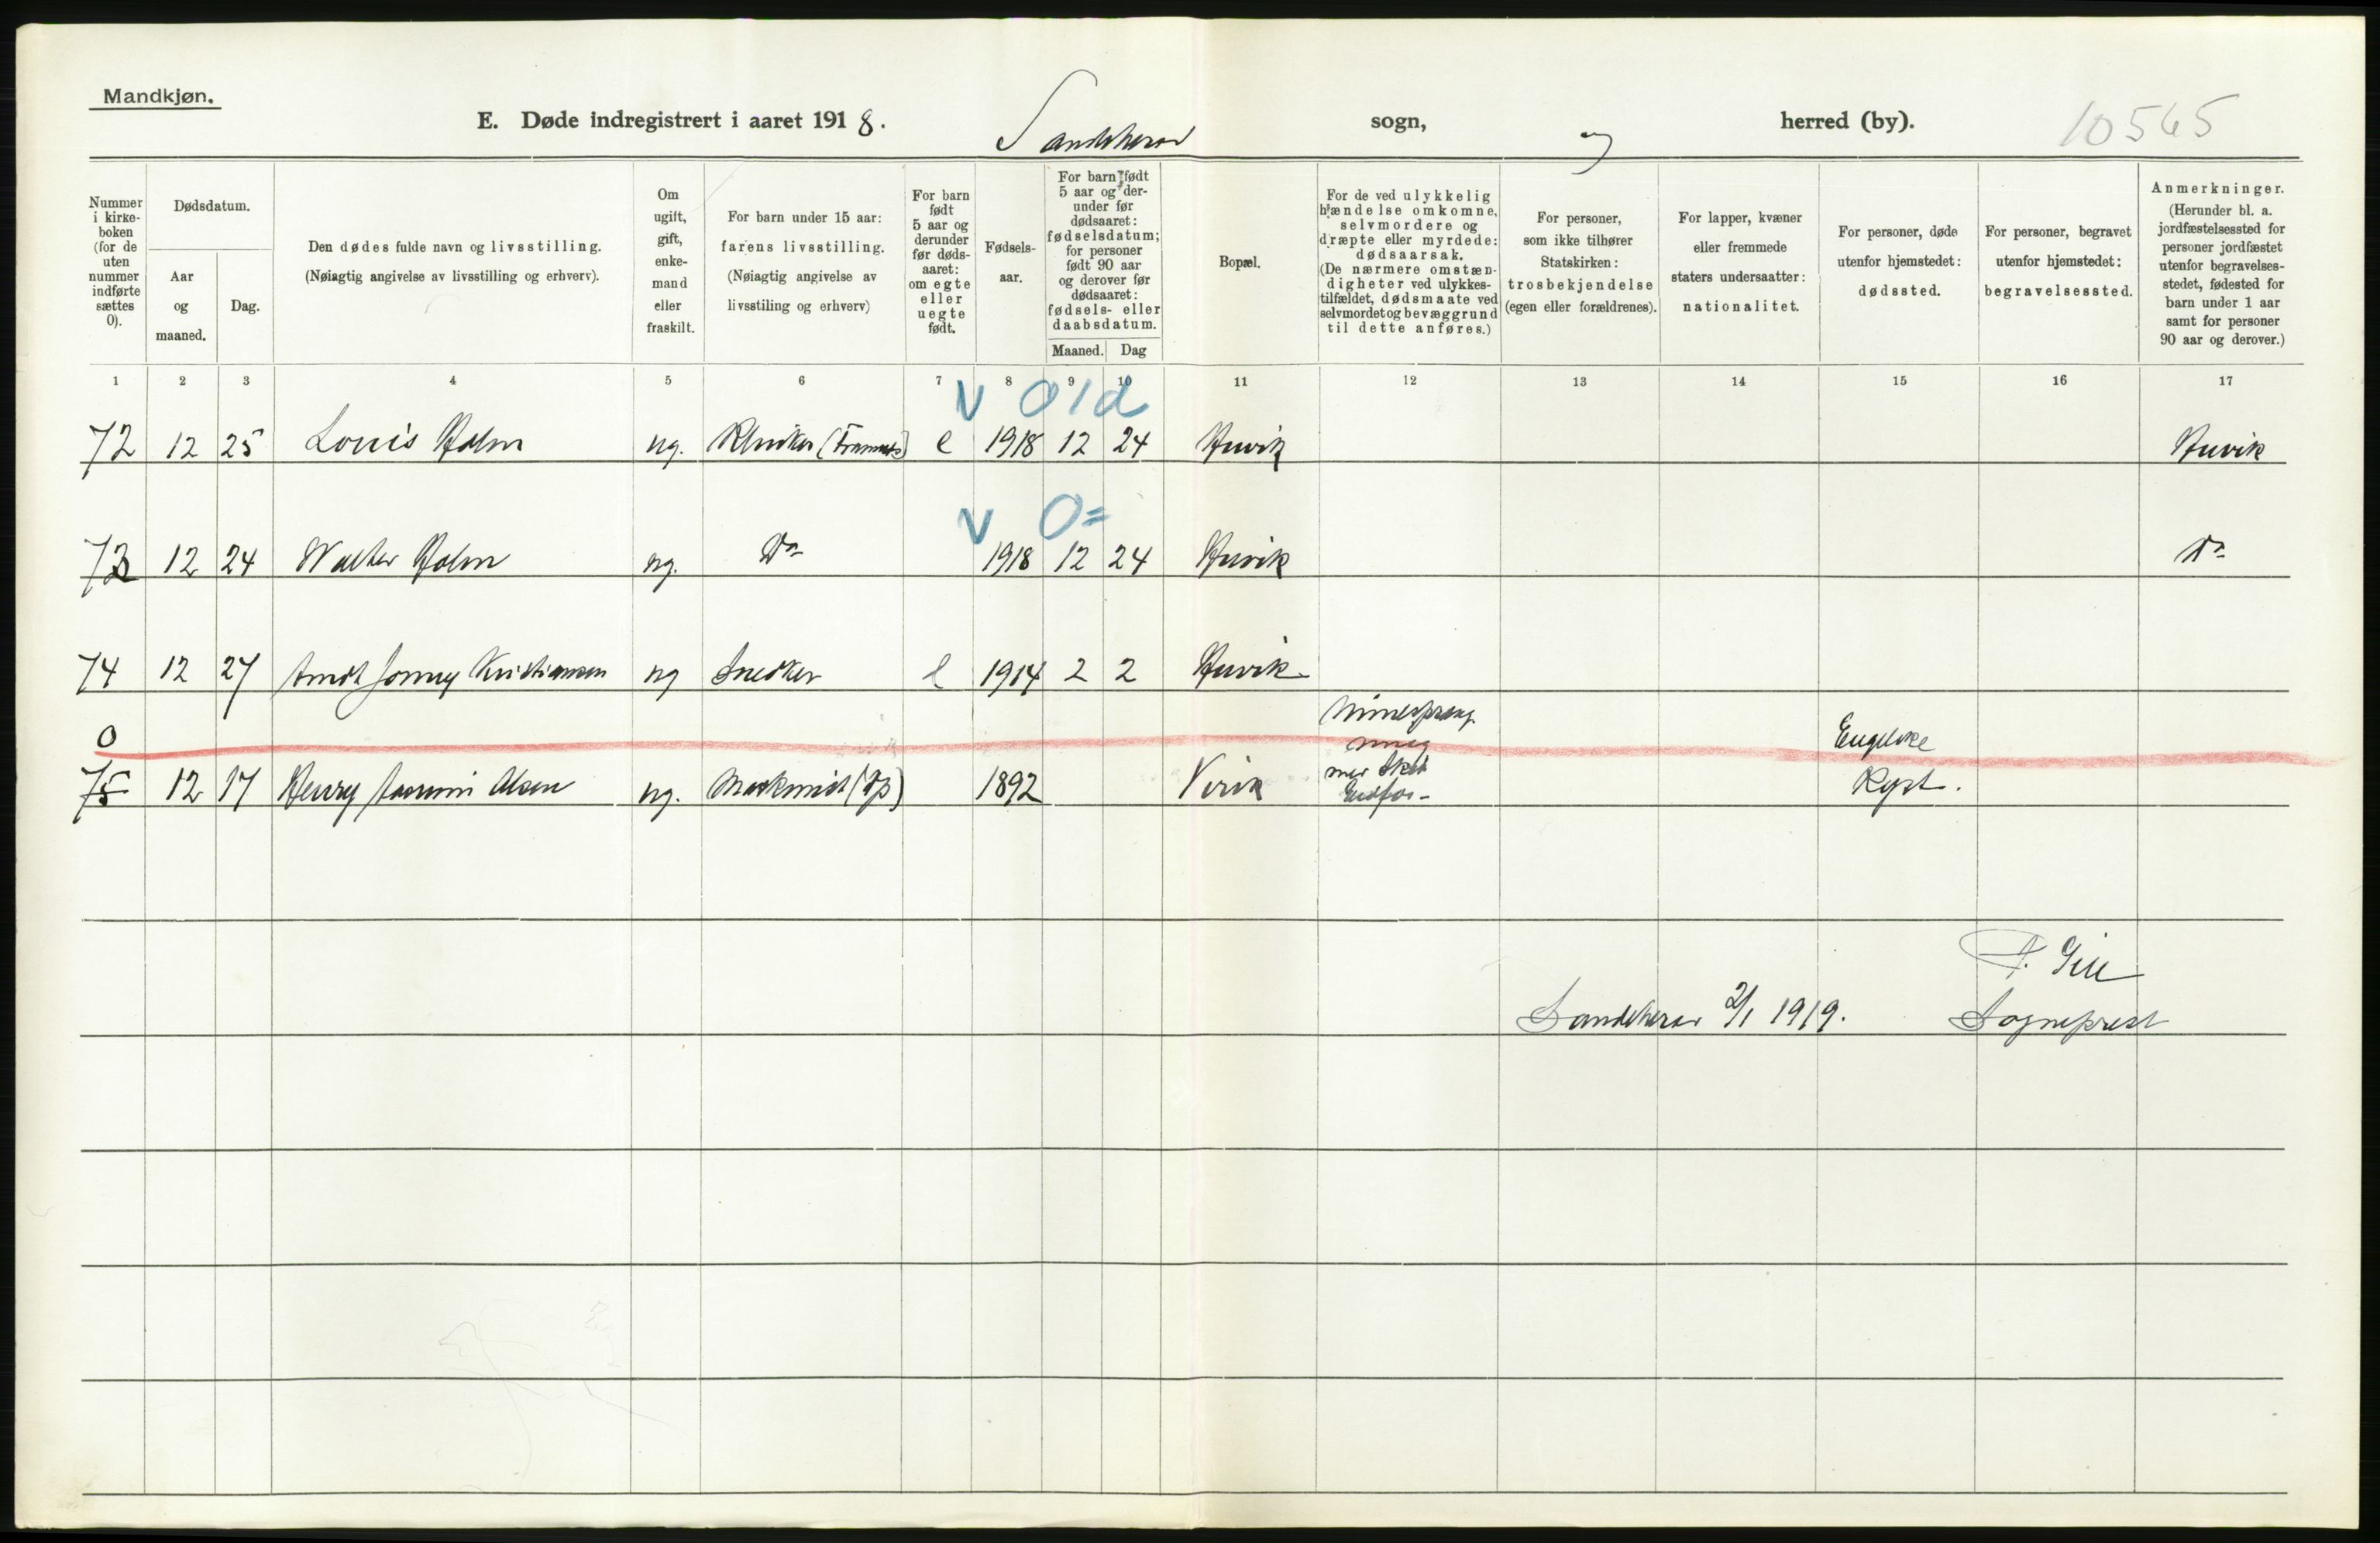 Mandkjøn.
E. Døde indregistrert i aaret 1918. Sandeherad sogn, herred (by). 10565
Nummer i kirke-boken (for de uten nummer indførte sættes 0).
Dødsdatum.
Aar og maaned.
Dag.
Den dødes fulde navn og livsstilling.
(Nøiagtig angivelse av livsstilling og erhverv).
Om ugift, gift, enke-mand eller fraskilt.
For barn under 15 aar: farens livsstilling.
(Nøiagtig angivelse av livsstiling og erhverv)
For barn født 5 aar og derunder før døds-aaret: om egte eller uegte født.
Fødsels-aar.
For barn født 5 aar og der-under før dødsaaret: fødselsdatum; for personer født 90 aar og derover før dødsaaret: fødsels- eller daabsdatum.
Maaned. Dag
Bopæl.
For de ved ulykkelig hændelse omkomne, selvmordere og dræpte eller myrdede: dødsaarsak.
(De nærmere omstæn-digheter ved ulykkes-tilfældet, dødsmaate ved selvmordet og bevæggrund til dette anføres.)
For personer, som ikke tilhører Statskirken: trosbekjendelse (egen eller forældrenes).
For lapper, kvæner eller fremmede staters undersaatter: nationalitet.
For personer, døde utenfor hjemstedet: dødssted.
For personer, begravet utenfor hjemstedet: begravelsessted.
Anmerkninger.
(Herunder bl. a. jordfæstelsessted for personer jordfæstet utenfor begravelses-stedet, fødested for barn under 1 aar samt for personer 90 aar og derover.)
1 2 3 4 5 6 7 8 9 10 11 12 13 14 15 16 17
V 0 1 d
72 12 25 Louis Holm ug. e 1918 12 24 Huvik Huvik
V 0 =
73 12 24 Walter Holm ug. Do 1918 12 24 Huvik Do
74 12 27 Arndt Jonny Kristiansen ug Snedker e 1914 2 2 Huvik
0
75 12 17 Henry Olsen ug. 1892 Virik Engelske Kyst.
Sandeherad 2/1 1919. Sogneprest